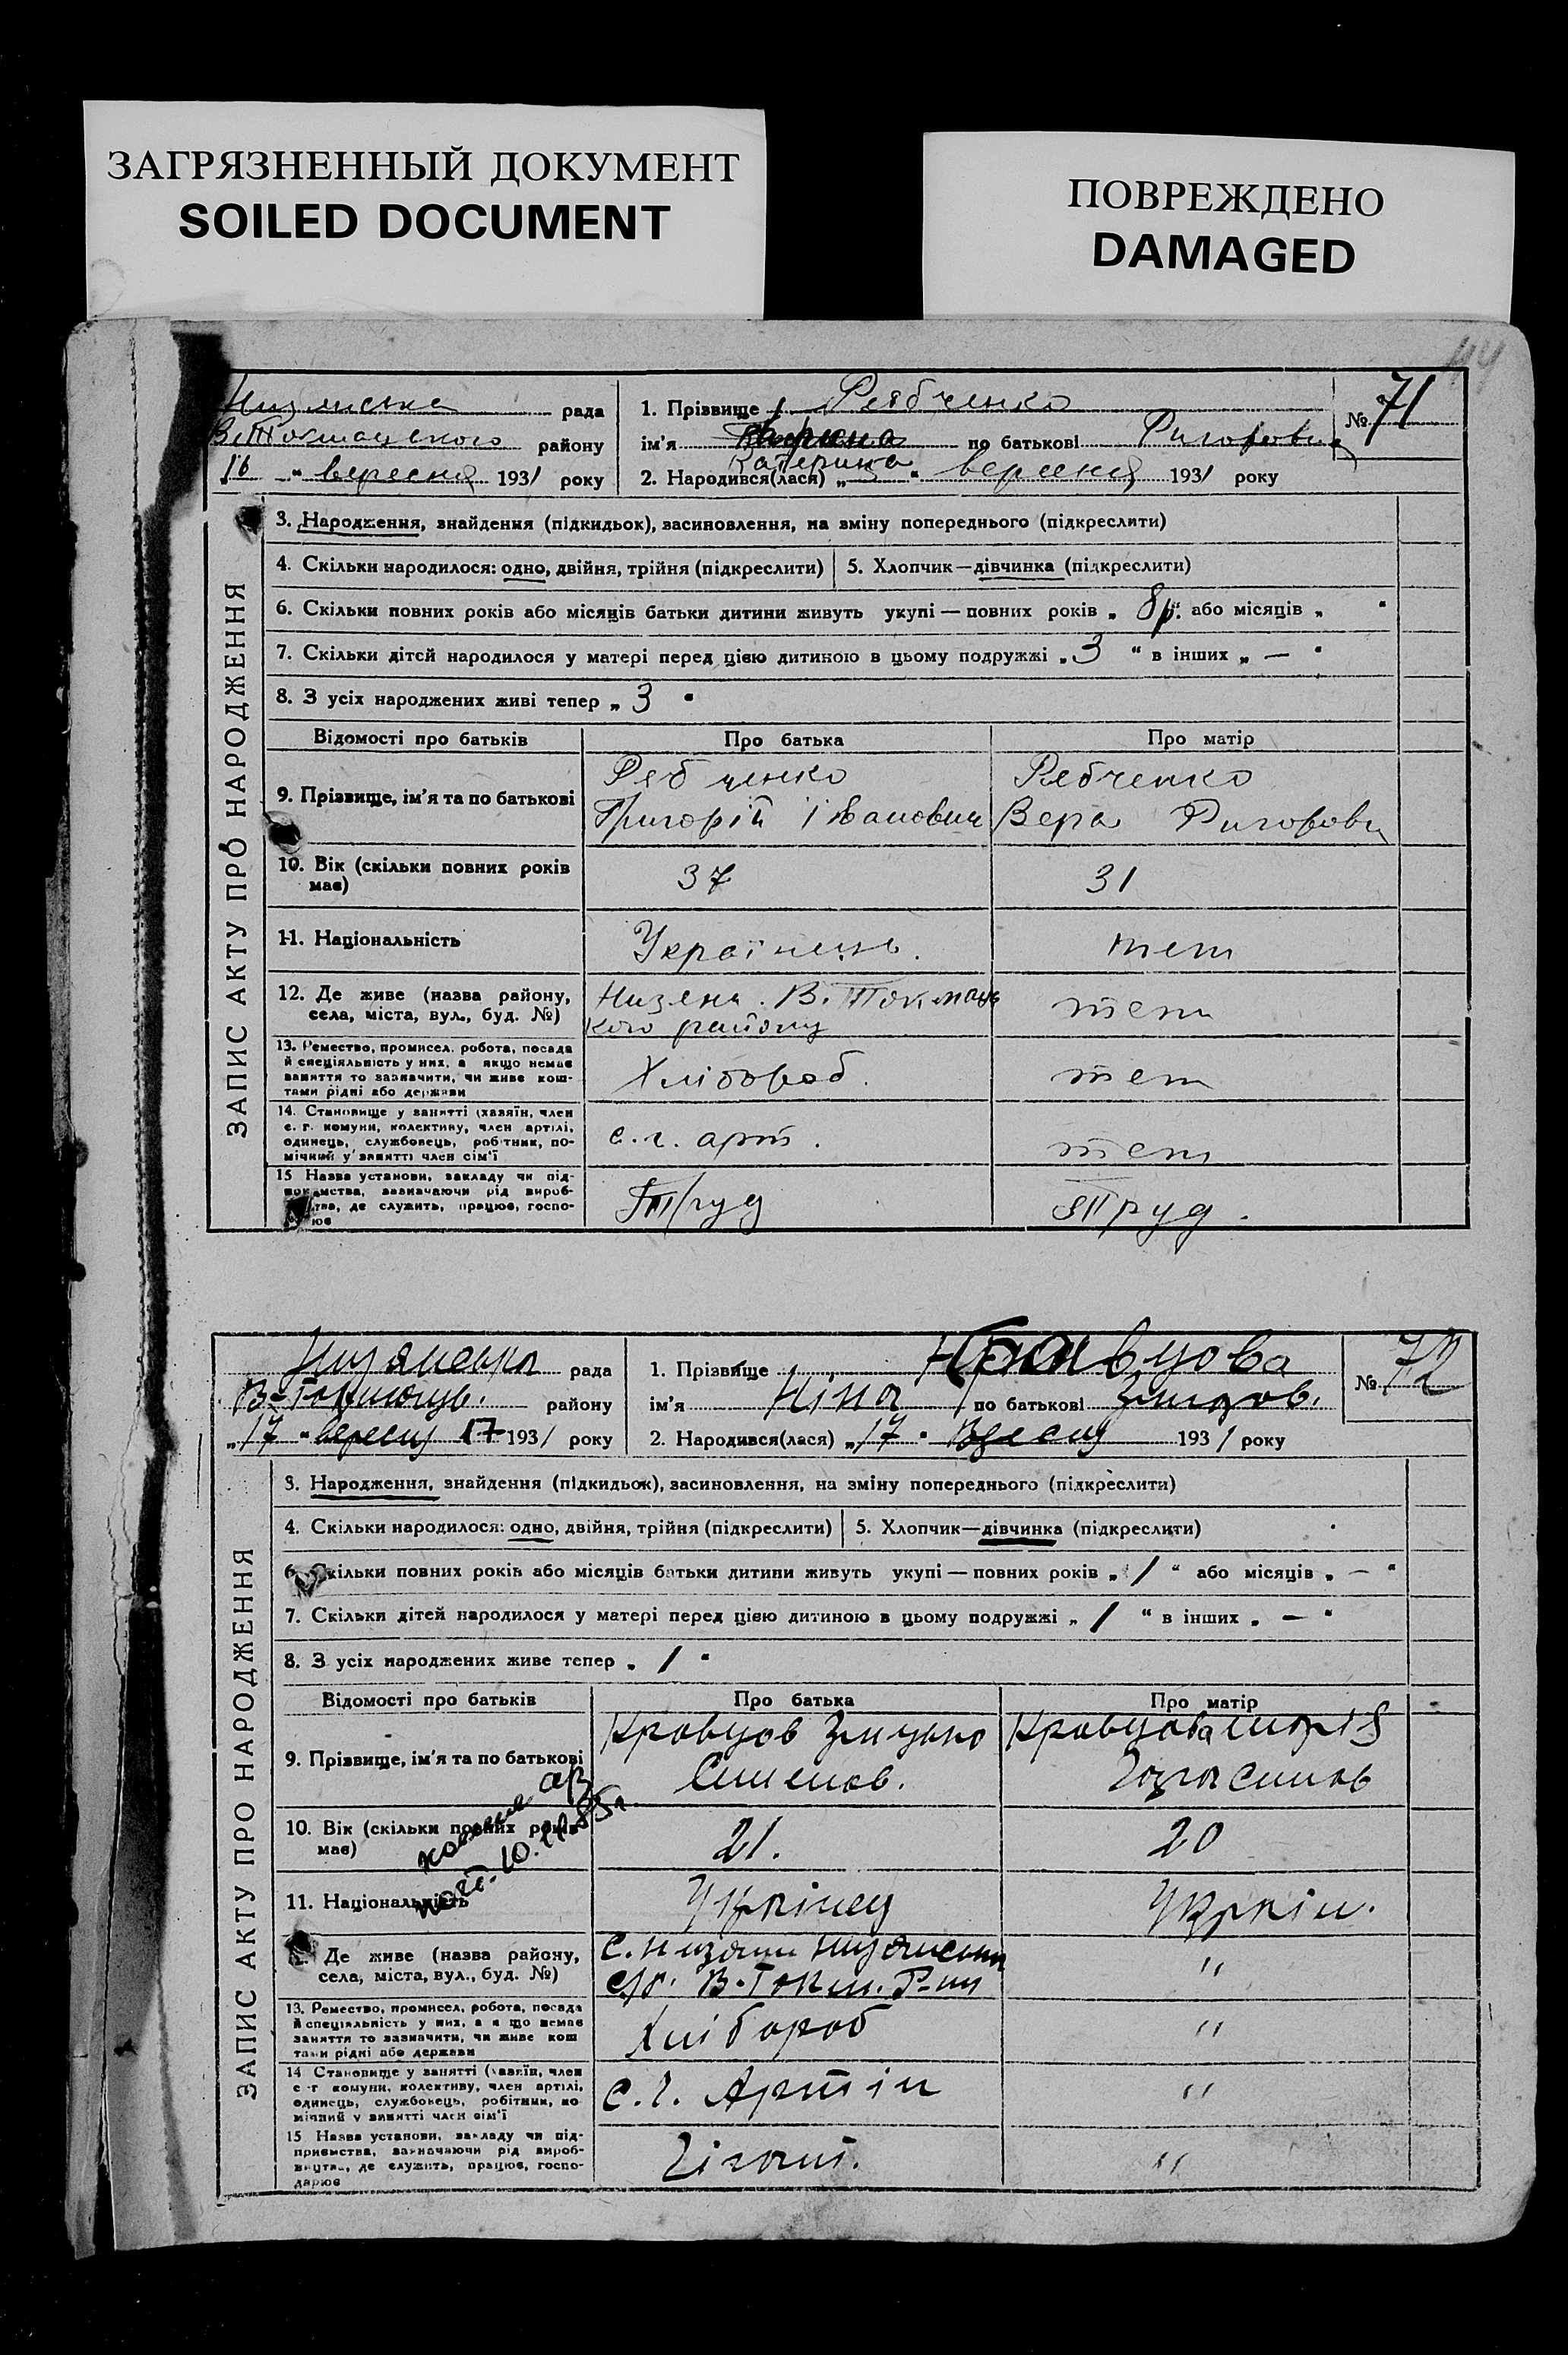 ЗАГРЯЗНЕННЫЙ ДОКУМЕНТ
SOILED DOCUMENT
ПОВРЕЖДЕНО
DAMAGED
рада
району
16 " вересня 1931 року
1. Прізвище Рябченко
ім'я Катерина по батькові Ригоровна
2. Народився(лася) „ " вересня 1931 року
№ 71
ЗАПИС АКТУ ПРО НАРОДЖЕННЯ
3. Народження, знайдення (підкидьок), засиновлення, на зміну попереднього (підкреслити)
4. Скільки народилося: одно, двійня, трійня (підкреслити) 5. Хлопчик—дівчинка (підкреслити)
6. Скільки повних років або місяців батьки дитини живуть укупі — повних років „ 8р. " або місяців „ "
7. Скільки дітей народилося у матері перед цією дитиною в цьому подружжі „ 3 " в інших „ — "
8. З усіх народжених живі тепер „ 3 "
Відомості про батьків Про батька Про матір
9. Прізвище, ім'я та по батькові
Рябченко Рябченко
Григорій Іванович Вера
10. Вік (скільки повних років має) 37 31
11. Національність Українець. теж
12. Де живе (назва району, села, міста, вул., буд. №)
Низяни. В. Токмаць
кого району теж
13. Ремество, промисел, робота, посада
й спеціяльність у них, а якщо немає
заняття то зазначити, чи живе кош-
тами рідні або держави
Хлібороб. теж
14. Становище у занятті (хазяїн, член
с. г. комуни, колективу, член артілі,
одинець, службовець, робітник, по-
мічний у занятті член сім'ї
с. г. арт. теж
15 Назва установи, закладу чи під-
приємства, зазначаючи рід вироб-
тва, де служить, працює, госпо-
Труд Труд.
Низянська рада
В-Токмаць. району
„17 " вересня 17 1931 року
1. Прізвище Кравцова
ім'я Ніна по батькові Змицов.
2. Народився(лася) „17 " Вересня 1931 року
№ 72
ЗАПИС АКТУ ПРО НАРОДЖЕННЯ
3. Народження, знайдення (підкидьок), засиновлення, на зміну попереднього (підкреслити)
4. Скільки народилося: одно, двійня, трійня (підкреслити) 5. Хлопчик—дівчинка (підкреслити)
6. Скільки повних років або місяців батьки дитини живуть укупі — повних років „ 1 " або місяців „ — "
7. Скільки дітей народилося у матері перед цією дитиною в цьому подружжі „ 1 " в інших „ — "
8. З усіх народжених живе тепер „ 1 "
Відомості про батьків Про батька Про матір
9. Прізвище, ім'я та по батькові
Кравцов Кравцова Марія
Семенов.
10. Вік (скільки повних років має) 21. 20
11. Національність Украінец Украін.
12. Де живе (назва району, села, міста, вул., буд. №)
с. Низяни Низянськ
с/р. В-Токм. Р-ну "
13. Ремество, промисел, робота, посада
й спеціяльність у них, а якщо немає
заняття то зазначити, чи живе кош
тами рідні або держави
Хлібороб "
14 Становище у занятті (хазяїн, член
с г комуни, колективу, член артілі,
одинець, службовець, робітник, по
мічний у занятті член сім'ї
С. Г. Артіл "
15 Назва установи, закладу чи під-
приємства, зазначаючи рід вироб-
ництва, де служить, працює, госпо-
дарює
Гігант. "